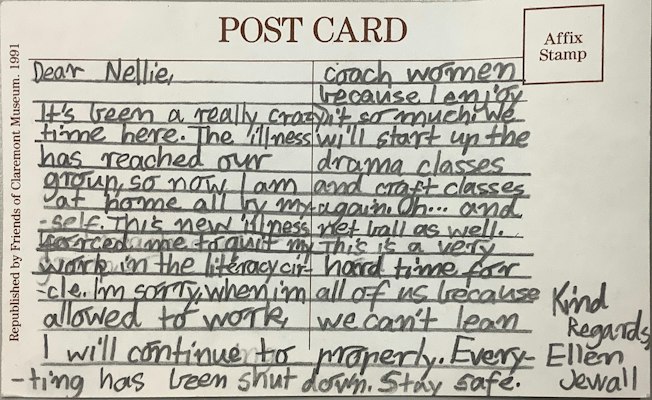 POST CARD
Affix
Stamp
Republished by Friends of Claremont Museum. 1991
Dear Nellie,
It's been a really crazy
time here. The illness
has reached our
group, so now I am
at home all by my-
-self. This new illness
forced me to quit my
work in the literacy cir-
-cle. I'm sorry, when i'm
allowed to work,
I will continue to
coach women
because I enjoy
it so much. We
will start up the
drama classes
and craft classes
again. Oh... and
net ball as well.
This is a very
hard time for
all of us because
we can't lean
properly. Every-
-ting has been shut down. Stay safe.
Kind
Regards,
Ellen
Jewall